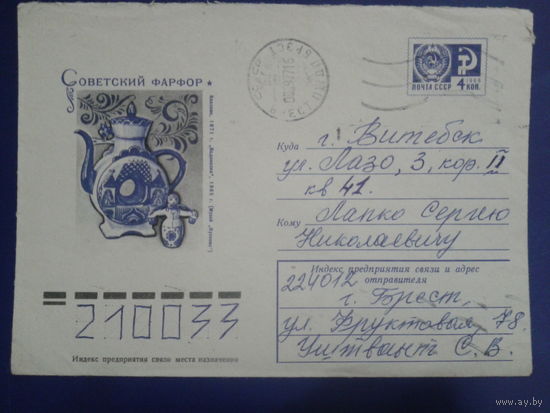 Советский фарфор
ПОЧТА СССР
4 КОП.
Куда
г. Витебск
ул. Лазо, 3, кор. II
кв 42.
Кому
Лапко Сергею
Николаевичу
Индекс предприятия связи и адрес
отправителя
224012
г. Брест,
ул. Фруктовая, 78.
С. В.
210033
Индекс предприятия связи места назначения
www.ay.by